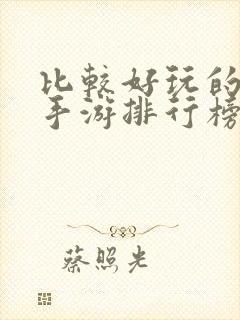 比较好玩的
手游排行榜
蔡照光